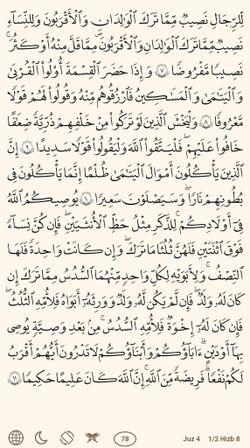 لِّلرِّجَالِ نَصِيبٌ مِّمَّا تَرَكَ ٱلْوَٰلِدَانِ وَٱلْأَقْرَبُونَ وَلِلنِّسَآءِ
نَصِيبٌ مِّمَّا تَرَكَ ٱلْوَٰلِدَانِ وَٱلْأَقْرَبُونَ مِمَّا قَلَّ مِنْهُ أَوْ كَثُرَ ۚ
نَصِيبًا مَّفْرُوضًا ٧ وَإِذَا حَضَرَ ٱلْقِسْمَةَ أُو۟لُوا۟ ٱلْقُرْبَىٰ
وَٱلْيَتَٰمَىٰ وَٱلْمَسَٰكِينُ فَٱرْزُقُوهُم مِّنْهُ وَقُولُوا۟ لَهُمْ قَوْلًا
مَّعْرُوفًا ٨ وَلْيَخْشَ ٱلَّذِينَ لَوْ تَرَكُوا۟ مِنْ خَلْفِهِمْ ذُرِّيَّةً ضِعَٰفًا
خَافُوا۟ عَلَيْهِمْ فَلْيَتَّقُوا۟ ٱللَّهَ وَلْيَقُولُوا۟ قَوْلًا سَدِيدًا ٩ إِنَّ
ٱلَّذِينَ يَأْكُلُونَ أَمْوَٰلَ ٱلْيَتَٰمَىٰ ظُلْمًا إِنَّمَا يَأْكُلُونَ فِى
بُطُونِهِمْ نَارًا ۖ وَسَيَصْلَوْنَ سَعِيرًا ١٠ يُوصِيكُمُ ٱللَّهُ
فِىٓ أَوْلَٰدِكُمْ ۖ لِلذَّكَرِ مِثْلُ حَظِّ ٱلْأُنثَيَيْنِ ۚ فَإِن كُنَّ نِسَآءً
فَوْقَ ٱثْنَتَيْنِ فَلَهُنَّ ثُلُثَا مَا تَرَكَ ۖ وَإِن كَانَتْ وَٰحِدَةً فَلَهَا
ٱلنِّصْفُ ۚ وَلِأَبَوَيْهِ لِكُلِّ وَٰحِدٍ مِّنْهُمَا ٱلسُّدُسُ مِمَّا تَرَكَ إِن
كَانَ لَهُۥ وَلَدٌ ۚ فَإِن لَّمْ يَكُن لَّهُۥ وَلَدٌ وَوَرِثَهُۥٓ أَبَوَاهُ فَلِأُمِّهِ ٱلثُّلُثُ ۚ
فَإِن كَانَ لَهُۥٓ إِخْوَةٌ فَلِأُمِّهِ ٱلسُّدُسُ ۚ مِنۢ بَعْدِ وَصِيَّةٍ يُوصِى
بِهَآ أَوْ دَيْنٍ ۗ ءَابَآؤُكُمْ وَأَبْنَآؤُكُمْ لَا تَدْرُونَ أَيُّهُمْ أَقْرَبُ
لَكُمْ نَفْعًا ۚ فَرِيضَةً مِّنَ ٱللَّهِ ۗ إِنَّ ٱللَّهَ كَانَ عَلِيمًا حَكِيمًا ١١
78 Juz 4 1/2 Hizb 8